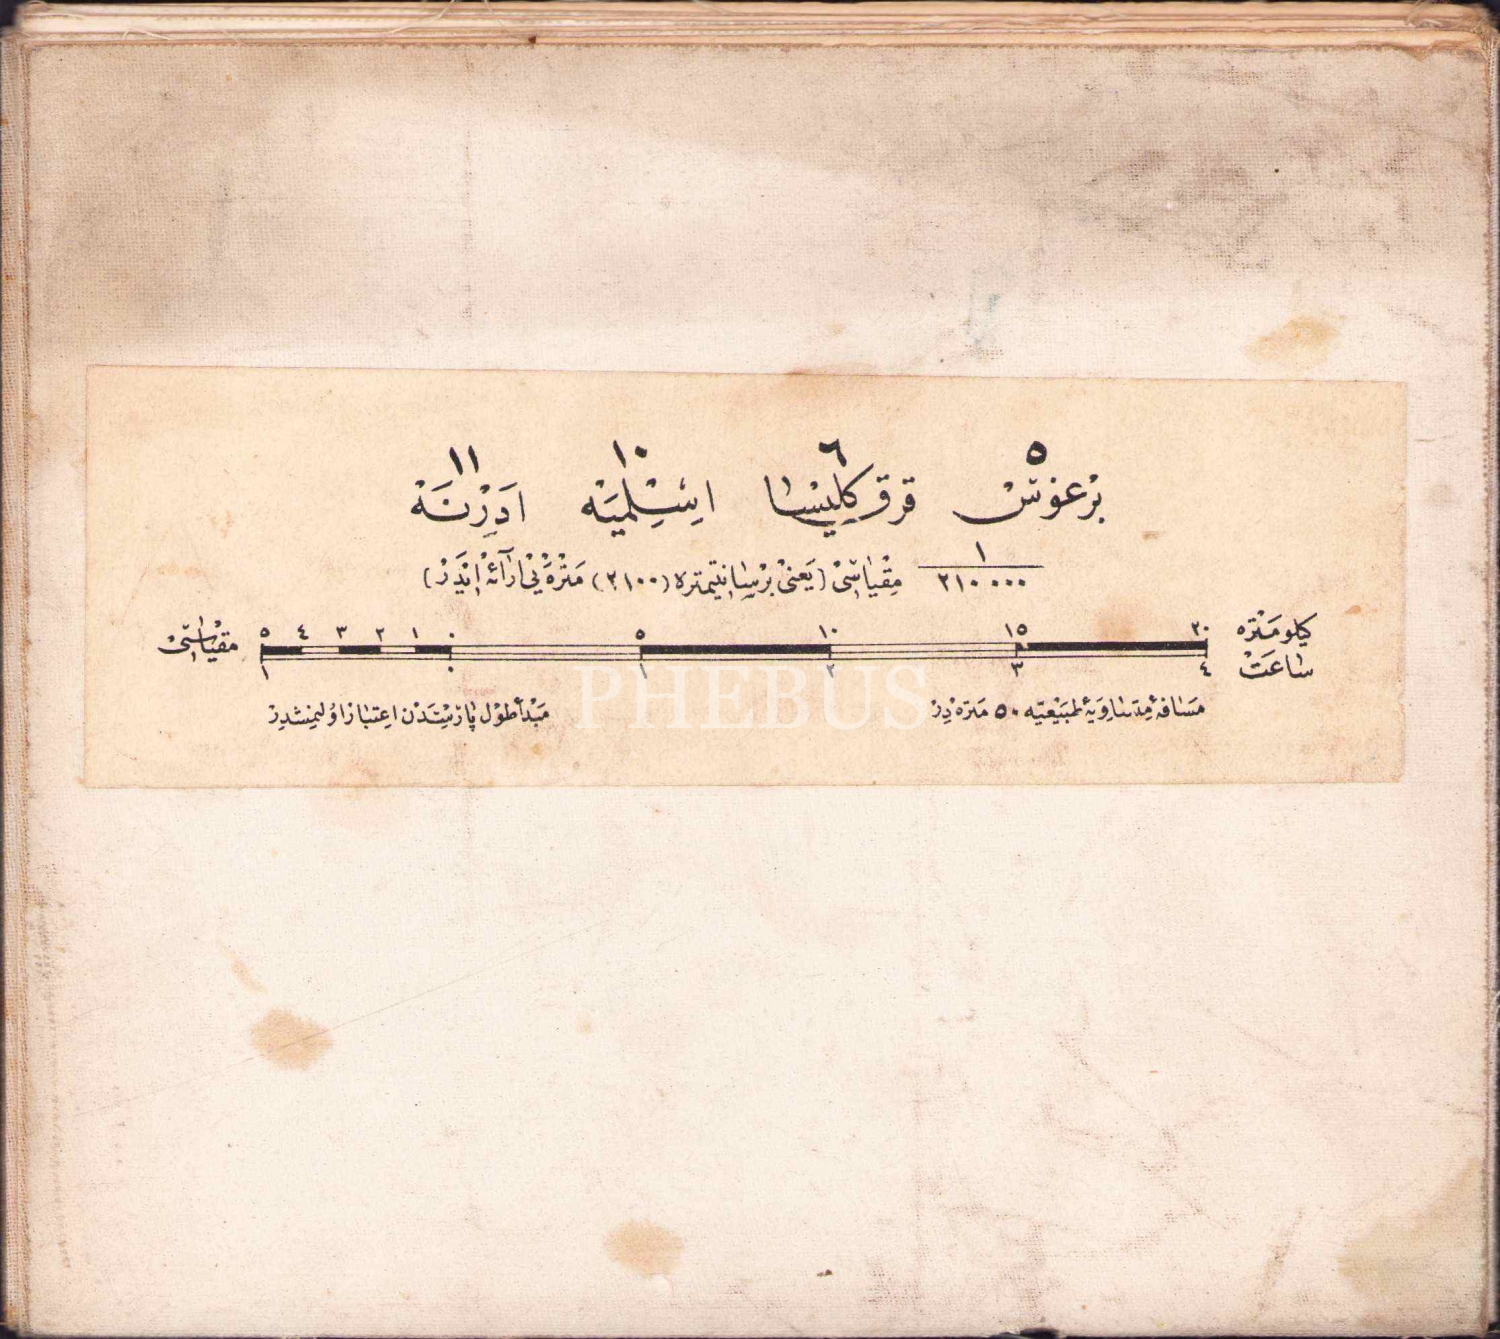 ٥ ٦ ١٠ ١١
برغوس قرق كليسا اسلميه ادرنه
١
٢١٠٠٠٠ مقياسى (يعنى بر سانتيمتره (٢١٠٠) متره يى ارائه ايدر)
كيلومتره ٢٠ ١٥ ١٠ ٥ ٠ ١ ٢ ٣ ٤ ٥ مقياسى
ساعت ٤ ٣ ٢ ١ ٠ ١
مسافۀ متساويۀ طبيعيه ٥٠ متره در مبدأ طول پارستدن اعتبار اولنمشدر
PHEBUS